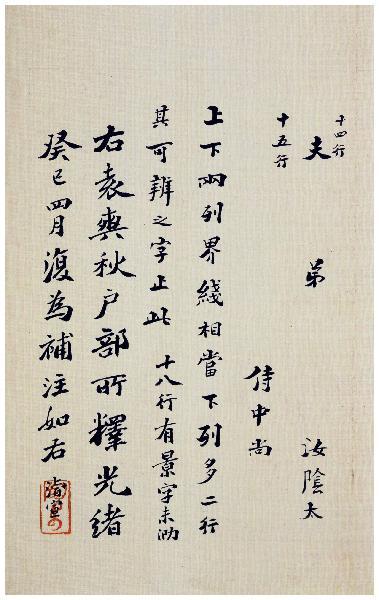 十四行 夫 弟 汝陰太
十五行 侍中尚
上下兩列界綫相當下列多二行
其可辨之字止此 十八行有景字未泐
右袁爽秋户部所釋光緒
癸巳四月復為補注如右